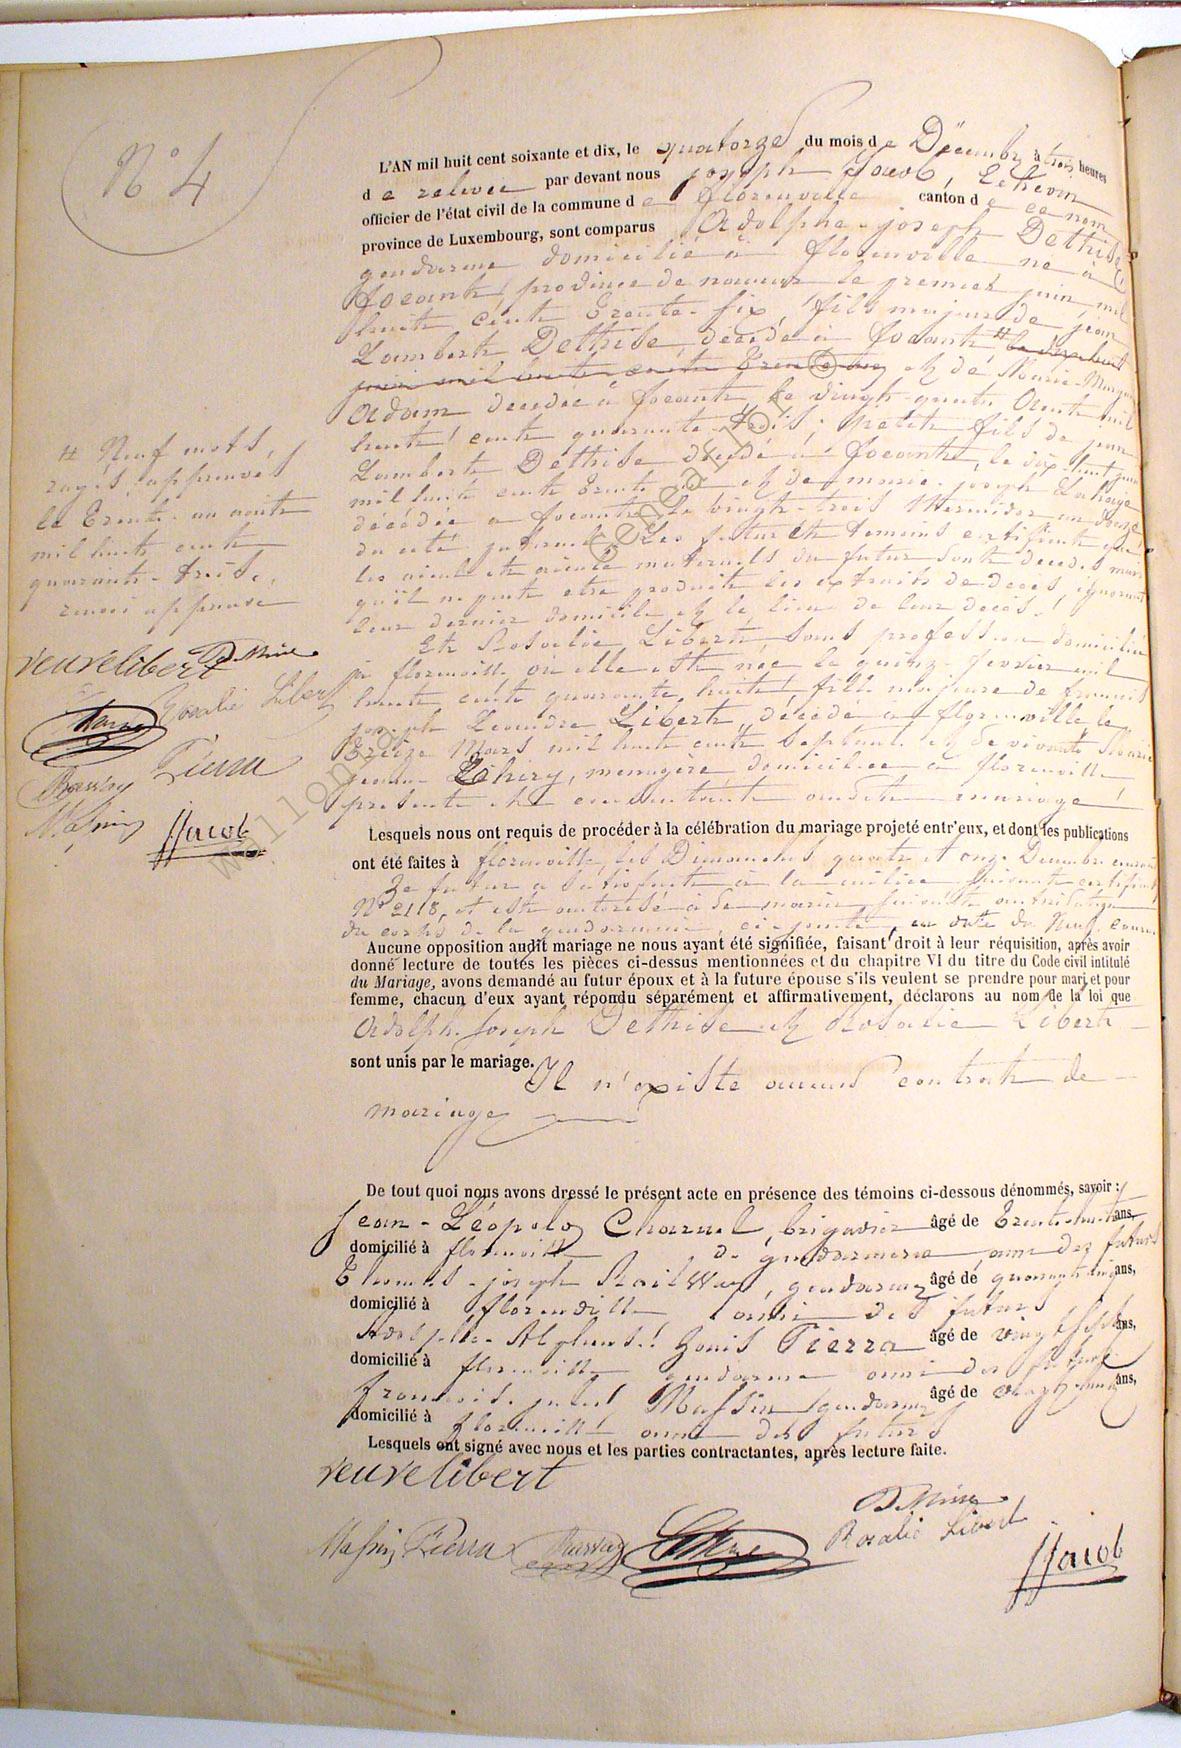 N° 4
L'AN mil huit cent soixante et dix, le quatorze du mois de Décembre à trois heures
de relevée par devant nous joseph Jacob, Echevin
officier de l'état civil de la commune de florenville canton de ce nom
province de Luxembourg, sont comparus Adolphe-joseph Dethise
gendarme domicilié à florenville né à
focant, province de namur le premier juin mil
huit cent trente-six, fils majeur de jean
Lambert Dethise, décédé à focant # le dix huit
juin mil huit cent trente et de Marie
Adam décédée à focant, le vingt-quatre Août mil
huit cent quarante-trois; petit fils de jean
Lambert Dethise décédé à focant, le dix huit juin
mil huit cent trente et de marie-joseph Lahaye
décédée à focant le vingt-trois thermidor an douze
du coté paternel. Les futur et temoins certifient que
les aieul et aieule maternels du futur sont décédés mais
qu'il ne peut etre produit les extraits de décès, ignorant
leur dernier domicile et le lieu de leur décès.
Et Rosalie Libert, sans profession domiciliée
à florenville où elle est née le quinze fevrier mil
huit cent quarante huit, fille majeure de françois
joseph Léandre Libert, décédé à florenville le
treize Mars mil huit cent septante et de vivante Marie
jeanne Thiry, menagère, domiciliée à florenville
présente et consentante audit mariage
# Neuf mots
rayés approuvés
le trente-un août
mil huit cent
quarante-trois,
renvoi approuvé
veuve libert
Rosalie Libert
Pierra
Massin
JJacob
Lesquels nous ont requis de procéder à la célébration du mariage projeté entr'eux, et dont les publications
ont été faites à florenville, les Dimanches quatre et onze Décembre courant
Le futur a satisfait à la milice suivant certificat
N° 2118, et est autorisé à se marier, suivant autorisation
du corps de la gendarmerie, ci jointe, en date du Neuf courant
Aucune opposition audit mariage ne nous ayant été signifiée, faisant droit à leur réquisition, après avoir
donné lecture de toutes les pièces ci-dessus mentionnées et du chapitre VI du titre du Code civil intitulé
du Mariage, avons demandé au futur époux et à la future épouse s'ils veulent se prendre pour mari et pour
femme, chacun d'eux ayant répondu séparément et affirmativement, déclarons au nom de la loi que
Adolphe-Joseph Dethise et Rosalie Libert
sont unis par le mariage. Il n'existe aucun contrat de
mariage
De tout quoi nous avons dressé le présent acte en présence des témoins ci-dessous dénommés, savoir :
Jean-Léopold Charuel, brigadier âgé de trente-huit ans,
domicilié à florenville de gendarmerie, ami des futurs
Thomas-joseph gendarme âgé de quarante cinq ans,
domicilié à florenville ami des futurs
Adolphe-Alphonse Louis Pierra âgé de vingt sept ans,
domicilié à florenville gendarme ami des futurs
françois-jules Massin gendarme âgé de vingt-huit ans,
domicilié à florenville ami des futurs
Lesquels ont signé avec nous et les parties contractantes, après lecture faite.
veuve libert
Massin Pierra
Rosalie Libert
JJacob